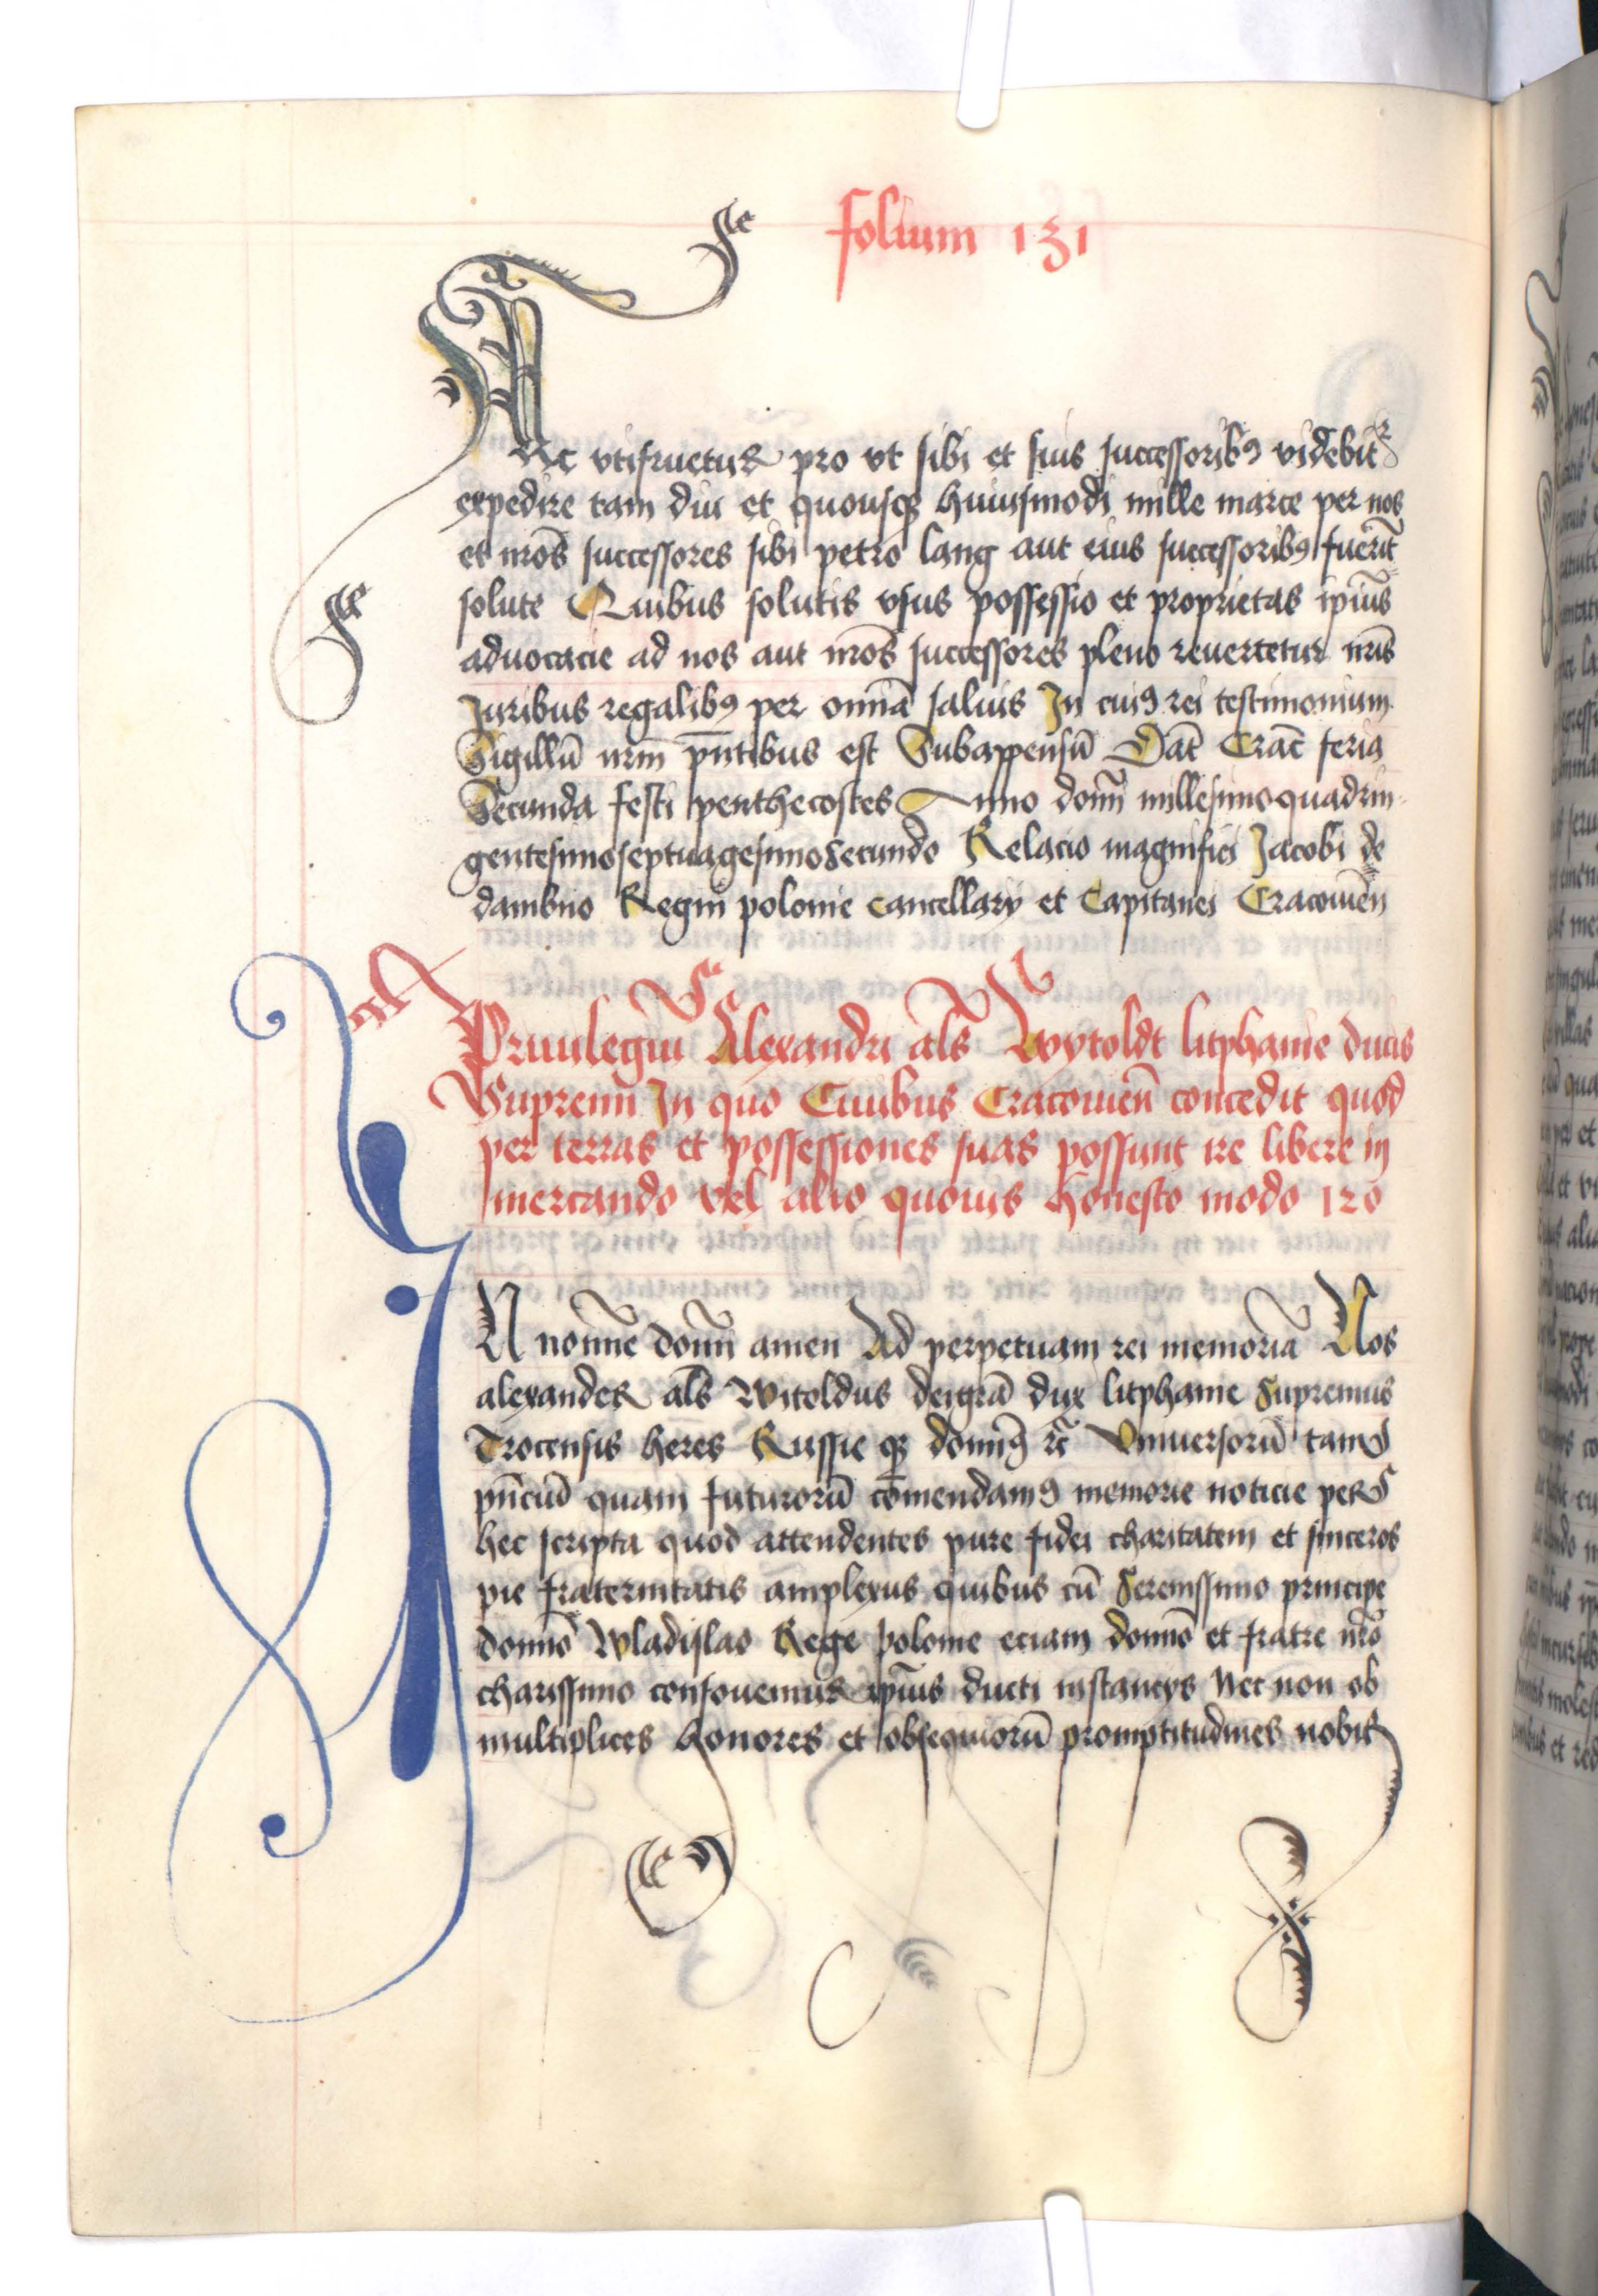 folium 131
Ac vtifruetur pro vt sibi et suis successoribꝯ videbit̄
expedire tam diu et quousqꝫ huiusmodi mille marce per nos
et nr̄os successores sibi petro lang aut eius successoribꝯ fuerīt
solute Quibus solutis vsus possessio et proprietas ip̄ius
aduocacie ad nos aut nr̄os successores pleno reuertetur nr̄is
Juribus regalibꝯ per omnīa saluis In cuiꝯ rei testimonium
Sigillū nrm̄ pn̄tibus est Subappensū Dat̄ Crac̄ feria
Secunda festi penthecostes Anno domī millesimoquadrin
gentesimoseptuagesimosecundo Relacio magnifici Jacobi de
dambno Regni polonie cancellarij et Capitanei Cracouien̄
Priuilegiū Alexandri al̄s Wytoldt litphanie ducis
Supremi In quo Ciuibus Cracouien̄ concedit quod
per terras et possessiones suas possunt ire libere in
mercando vel alio quouis honesto modo 120
IN nomīe domī amen Ad perpetuam rei memoriā Nos
alexander al̄s Witoldus deigrā dux litphanie Supremus
Trocensis heres Russie qꝫ domīꝯ rc̄ Vniuersorū tam
pn̄ciū quam futurorū cōmendamꝯ memorie noticie per
hec scripta quod attendentes pure fidei charitatem et sinceros
pie fraternitatis amplexus quibus cū Serenissimo principe
domīo Wladislao Rege polonie eciam domīo et fratre nr̄o
charissimo confouemur ip̄ius ducti instancijs Nec non ob
multiplices honores et obsequiorū promptitudines nobis